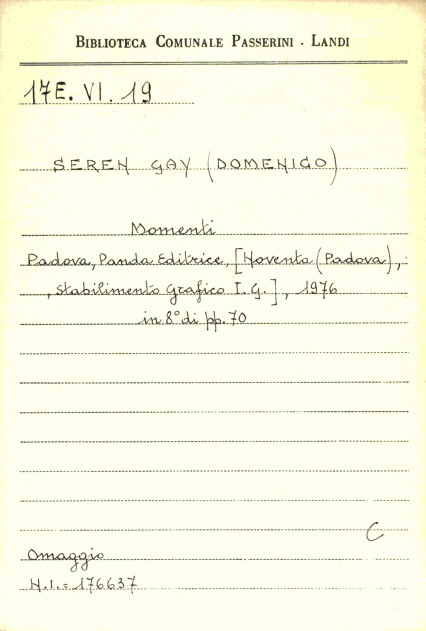 BIBLIOTECA COMUNALE PASSERINI - LANDI
17E. VI. 19
SEREN GAY (DOMENICO)
Momenti
Padova, Panda Editrice, [Noventa (Padova),
, Stabilimento Grafico I. G.], 1976
in 8° di pp. 70
C
Omaggio
N.I.= 176637